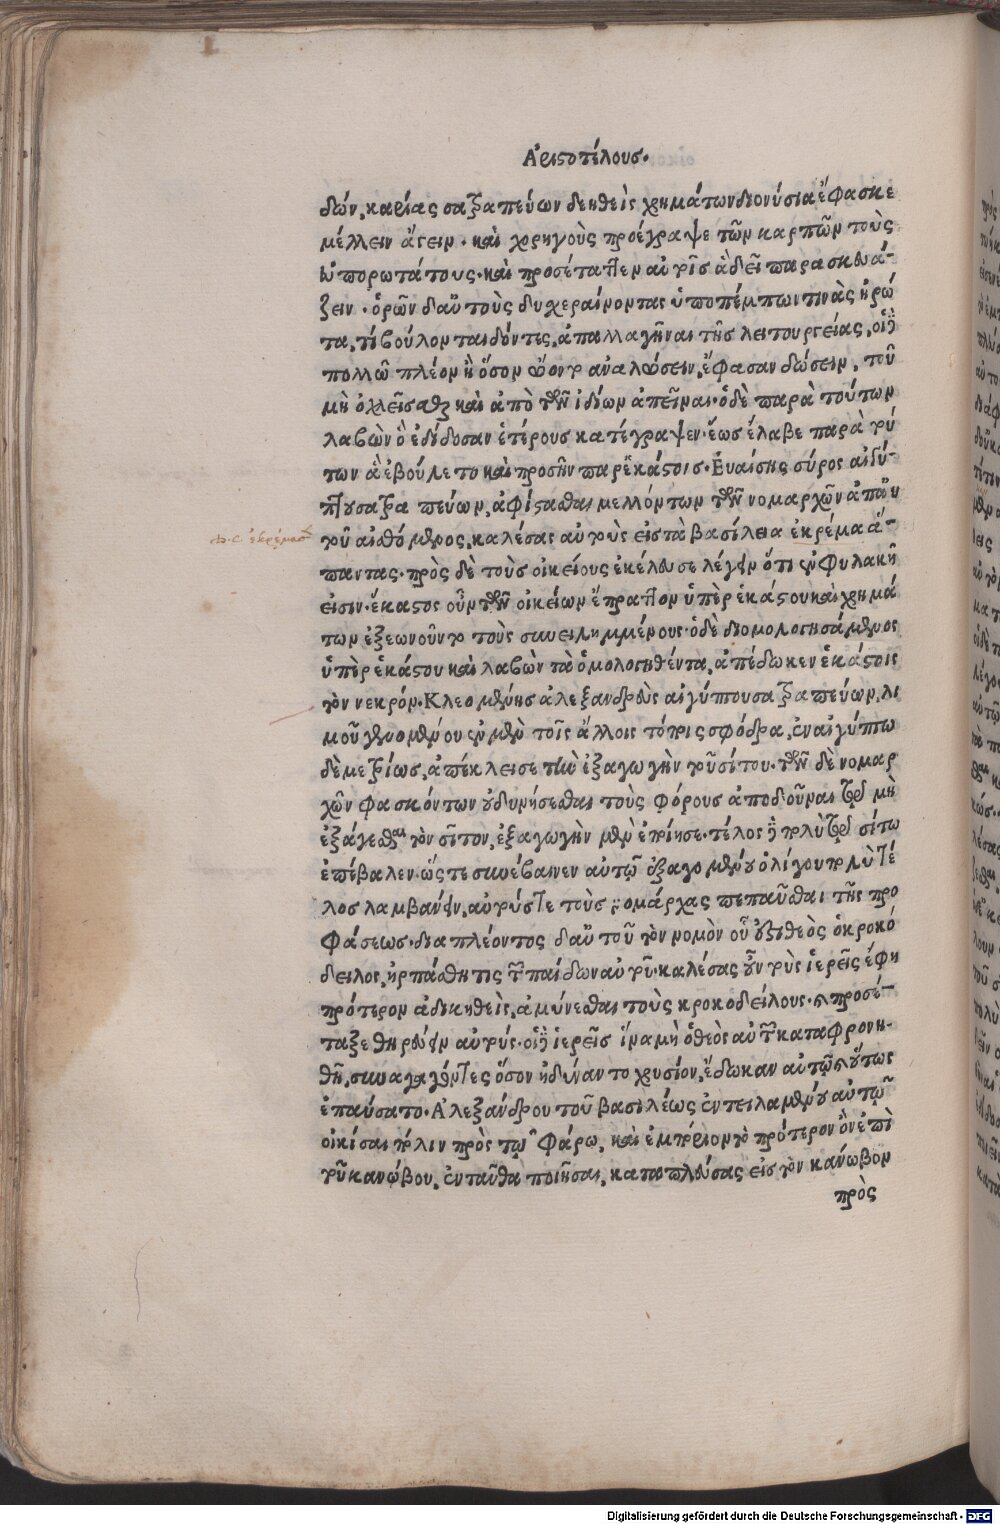 Ἀριστοτέλους.
δών, καρίας σατραπεύων δεηθεὶς χρημάτων διονύσια ἔφασκε
μέλλειν ἄγειν. καὶ χορηγοὺς προέγραψε τῶν καρπῶν τοὺς
εὐπορωτάτους. καὶ προσέταττεν αὐτοῖς ἃ δεῖ παρασκευά-
ζειν. ὁρῶν δ' αὐτοὺς δυχεραίνοντας ὑποπέμπων τινὰς ἠρώ
τα, τί βούλονται δόντες, ἀπαλλαγῆναι τῆς λειτουργείας, οἱ δὲ
πολλῶ πλέον ἢ ὅσον ᾤοντο ἀναλώσειν, ἔφασαν δώσειν, τοῦ
μὴ ὀχλεῖσθαι καὶ ἀπὸ τῶν ἰδίων ἀπεῖναι. ὁ δὲ παρὰ τούτων
λαβὼν ὃ ἐδίδοσαν ἑτέρους κατέγραψεν. ἕως ἔλαβε παρὰ τού
των ἃ ἐβούλετο καὶ προσῆν παρ' ἑκάστοις. Εὐαίσης σύρος αἰγύ-
πτου σατραπεύων, ἀφίστασθαι μελλόντων τῶν νομαρχῶν ἀπ' αὐ
τοῦ αἰσθόμενος, καλέσας αὐτοὺς εἰς τὰ βασίλεια ἐκρέμα ἅ-
παντας. πρὸς δὲ τοὺς οἰκείους ἐκέλευσε λέγειν ὅτι ἐν φυλακῆ
εἰσιν. ἕκαστος οὖν τῶν οἰκείων ἔπραττον ὑπὲρ ἑκάστου καὶ χρημά
των ἐξεωνοῦντο τοὺς συνειλημμένους. ὁ δὲ διομολογησάμενος
ὑπὲρ ἑκάστου καὶ λαβὼν τὰ ὁμολογηθέντα, ἀπέδωκεν ἑκάστοις
τὸν νεκρόν. Κλεομένης ἀλεξανδρεὺς αἰγύπτου σατραπεύων, λι
μοῦ γενομένου ἐν μὲν τοῖς ἄλλοις τόποις σφόδρα, ἐν αἰγύπτω
δὲ μετρίως, ἀπέκλεισε τὴν ἐξαγωγὴν τοῦ σίτου. τῶν δὲ νομαρ
χῶν φασκόντων οὐ δυνήσεσθαι τοὺς φόρους ἀποδοῦναι τῷ μὴ
ἐξάγεσθαι τὸν σῖτον, ἐξαγωγὴν μὲν ἐποίησε. τέλος δὲ πολὺ τῷ σίτω
ἐπέβαλεν. ὥστε συνέβαινεν αὐτῷ ἐξαγομένου ὀλίγου πολὺ τέ
λος λαμβάνειν, αὐτούς τε τοὺς νομάρχας πεπαῦσθαι τῆς προ
φάσεως. διαπλέοντος δ' αὐτοῦ τὸν νομὸν οὗ ἐστι θεὸς ὁ κροκό
δειλος, ἡρπάσθη τις τῶν παίδων αὐτοῦ. καλέσας οὖν τοὺς ἱερεῖς ἔφη
πρότερον ἀδικηθεὶς, ἀμύνεσθαι τοὺς κροκοδείλους. καὶ προσέ-
ταξε θηρεύειν αὐτούς. οἱ δὲ ἱερεῖς ἵνα μὴ ὁ θεὸς αὐτῶν καταφρονη-
θῇ, συναγαγόντες ὅσον ἠδύναντο χρυσίον, ἔδωκαν αὐτῷ καὶ οὕτως
ἐπαύσατο. Ἀλεξάνδρου τοῦ βασιλέως ἐντειλαμένου αὐτῷ
οἰκίσαι πόλιν πρὸς τῷ Φάρω, καὶ ἐμπόριον τὸ πρότερον ὂν ἐπὶ
τοῦ κανώβου, ἐνταῦθα ποιῆσαι, καταπλεύσας εἰς τὸν κάνωβον
πρὸς